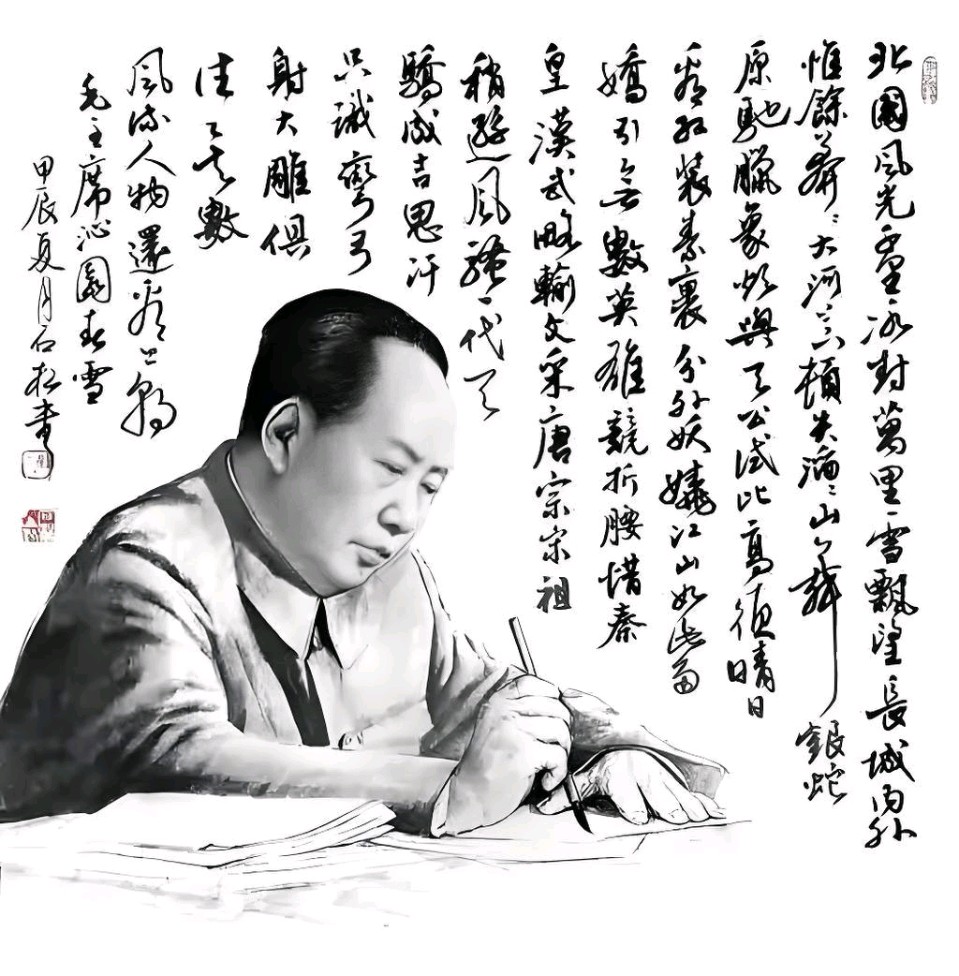 北國風光千里冰封萬里雪飄望長城内外
惟餘莽〻大河上下頓失滔〻山舞銀蛇
原馳臘象欲與天公試比高須晴日
看紅裝素裹分外妖嬈江山如此多
嬌引無數英雄競折腰惜秦
皇漢武略輸文采唐宗宋祖
稍遜風騷一代天
驕成吉思汗
只識彎弓
射大雕俱
往矣數
風流人物還看今朝
毛主席沁園春雪
甲辰夏月石松書